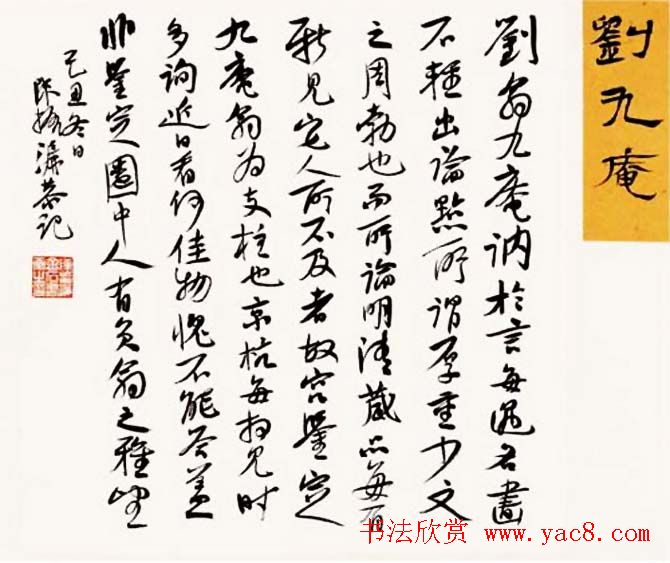 劉九庵
劉翁九庵訥於言每遇名畫
不輕出論點所謂厚重少文
之周勃也而所論明清藏品每有
新見它人所不及者故宮鑒定
九庵翁为支柱也京杭每相見时
多詢近日看何佳物愧不能答蓋
非鑒定圈中人有負翁之雅望
己丑冬日
陳振濂恭记
书法欣赏 www.yac8.com